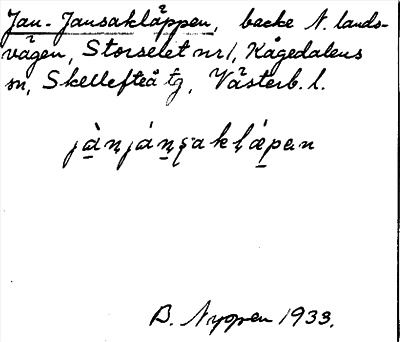 Jan-Jansakläppen, backe N. lands-
vägen, Storselet nr 1, Kågedalens
sn, Skellefteå tg, Västerb. l.
jàn̥ján̥ʂakḷǽpen
B. Nyppen 1933.